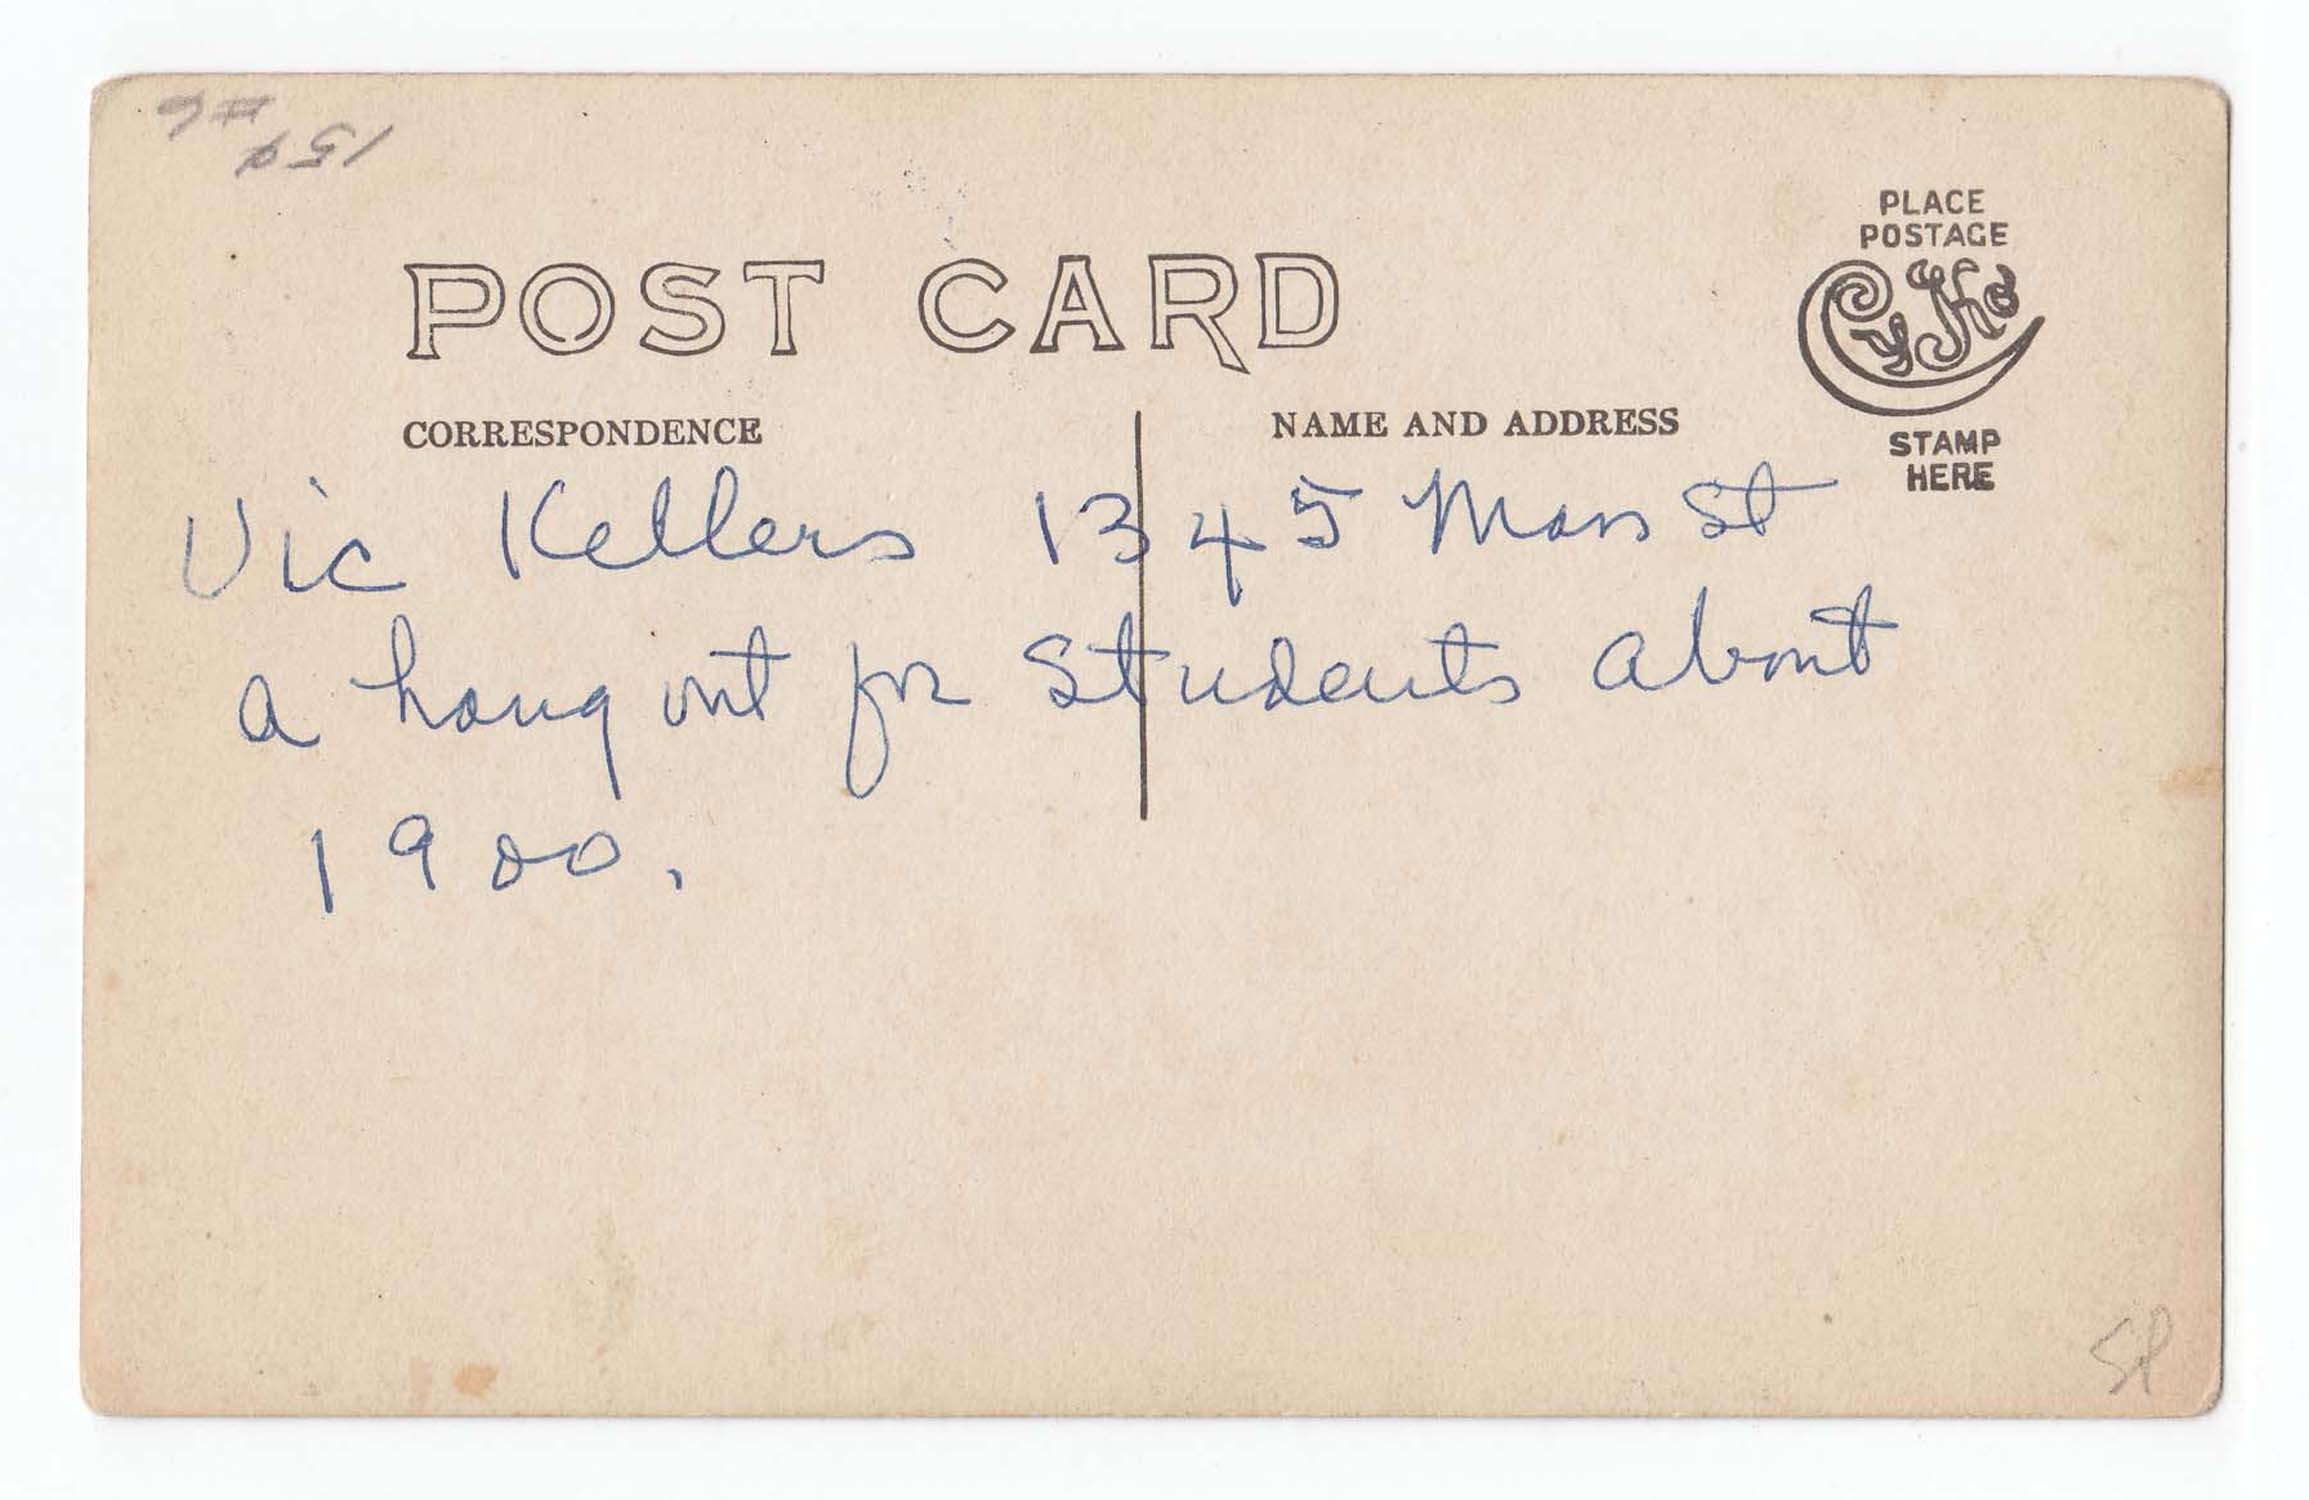 POST CARD
PLACE
POSTAGE
CYKO
STAMP
HERE
CORRESPONDENCE
NAME AND ADDRESS
Vic Kellers 1345 Mass St
a hang out for Students about
1900.